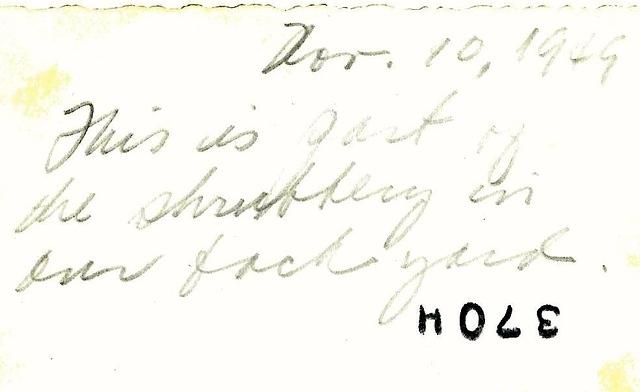 Nov. 10, 1949
This is part of
the shrubbery in
our back yard.
370H